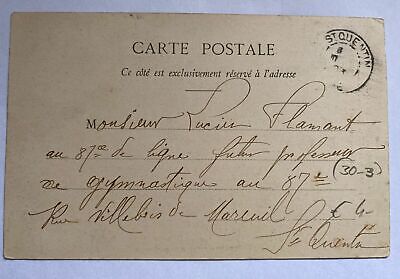 CARTE POSTALE
Ce côté est exclusivement réservé à l'adresse
ST QUENTIN
Monsieur Lucien Flamant
au 87e de ligne futur professeur
de gymnastique au 87e
(30-3)
Rue Villebois de Mareuil
£4-
St Quentin